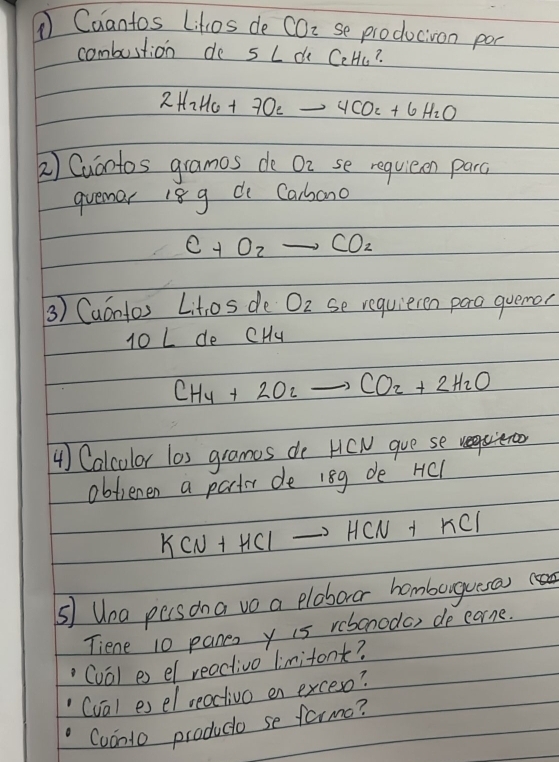 1) Cuántos Litros de CO₂ se produciron por
combustión de 5 L de C₂H₆?
2H₂H₆ + 7O₂ → 4CO₂ + 6H₂O
2) Cuántos gramos de O₂ se requieren para
quemar 18 g de Carbono
C + O₂ → CO₂
3) Cuántos Litros de O₂ se requieren para quemar
10 L de CH₄
CH₄ + 2O₂ → CO₂ + 2H₂O
4) Calcular los gramos de HCN que se
obtienen a partir de 18g de HCl
KCN + HCl → HCN + KCl
5) Una persona va a elaborar hamburguesas
Tiene 10 panes y 15 rebanadas de carne.
• Cuál es el reactivo limitante?
• Cuál es el reactivo en exceso?
• Cuánto producto se forma?